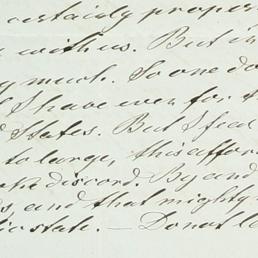 certainly proper
with us. But in
much. So one do
I have ever for th
States. But I fear
to large, this affor
discord. By and
and that mighty
state. — Do not l